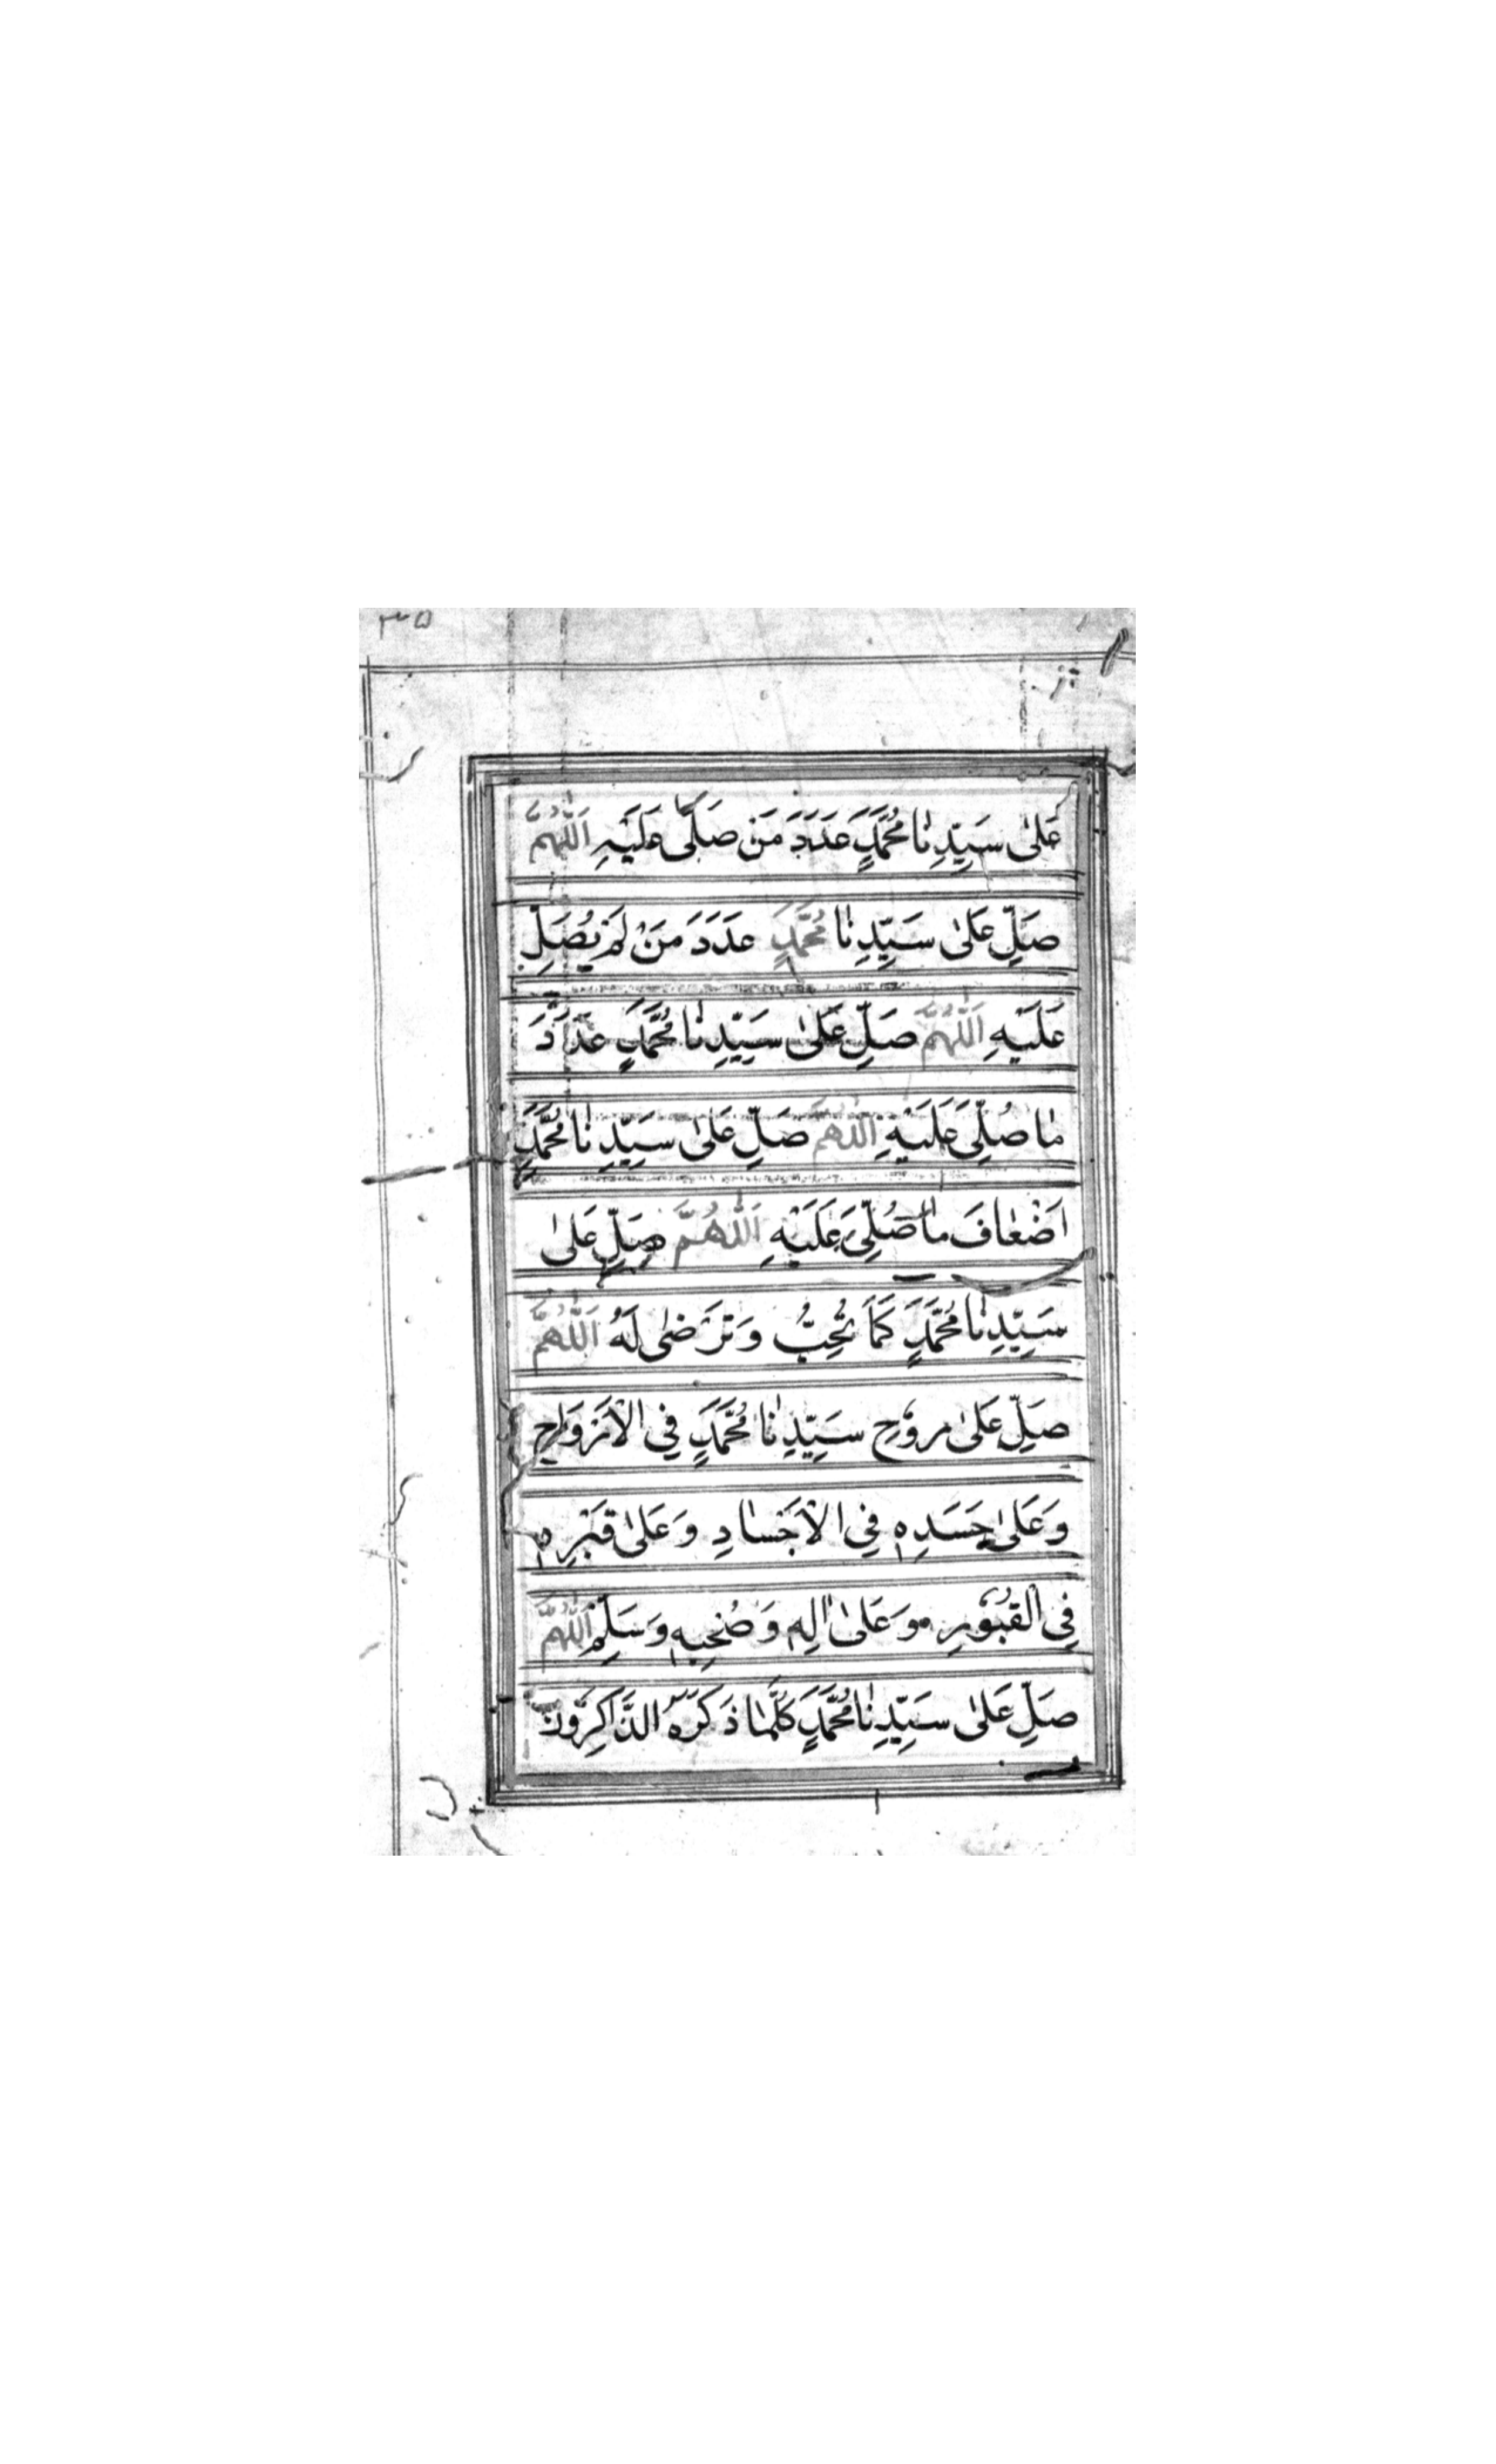 ٣٥
عَلىٰ سَيِّدِنٰا مُحَمَّدٍ عَدَدَ مَن صَلّٰى عَلَيْهِ اَللّٰهُمَّ
صَلِّ عَلىٰ سَيِّدِنٰا مُحَمَّدٍ عَدَدَ مَنْ لَمْ يُصَلِّ
عَلَيْهِ اَللّٰهُمَّ صَلِّ عَلىٰ سَيِّدِنٰا مُحَمَّدٍ عَدَدَ
مٰا صُلِّيَ عَلَيْهِ اَللّٰهُمَّ صَلِّ عَلىٰ سَيِّدِنٰا مُحَمَّدٍ
اَضْعٰافَ مٰا صُلِّيَ عَلَيْهِ اَللّٰهُمَّ صَلِّ عَلىٰ
سَيِّدِنٰا مُحَمَّدٍ كَمَا تُحِبُّ وَتَرْضٰى لَهُ اَللّٰهُمَّ
صَلِّ عَلىٰ رُوْحِ سَيِّدِنٰا مُحَمَّدٍ فِي الْاَرْوَاحِ
وَعَلىٰ جَسَدِهٖ فِي الْاَجْسٰادِ وَعَلىٰ قَبْرِهٖ
فِي الْقُبُوْرِ وَعَلىٰ اٰلِهٖ وَصَحْبِهٖ وَسَلِّمْ اَللّٰهُمَّ
صَلِّ عَلىٰ سَيِّدِنٰا مُحَمَّدٍ كُلَّمٰا ذَكَرَهُ الذَّاكِرُوْنَ